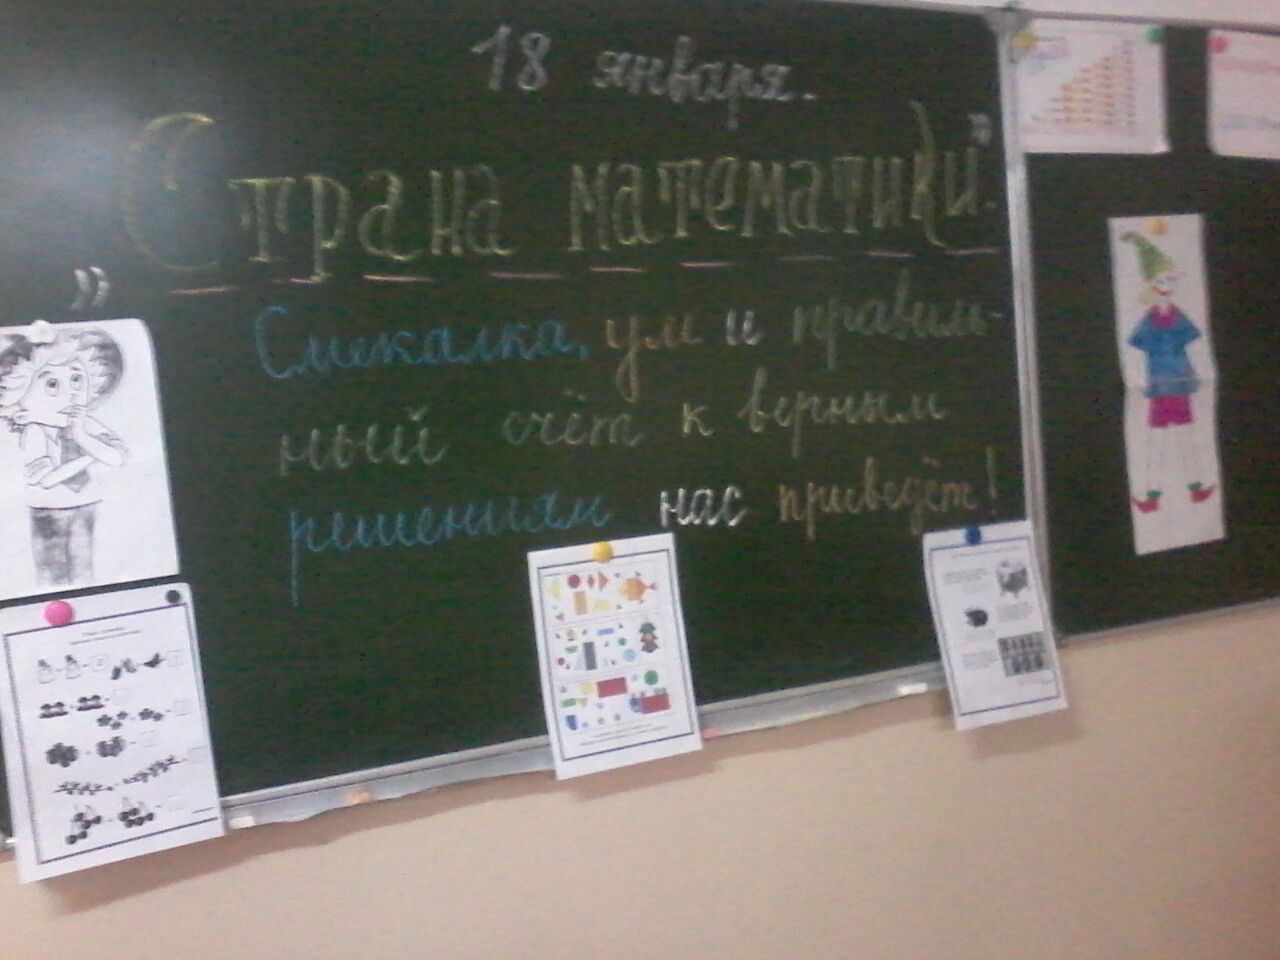 18 января.
„Страна математики".
Смекалка, ум и правиль-
ный счёт к верным
решениям нас приведёт!